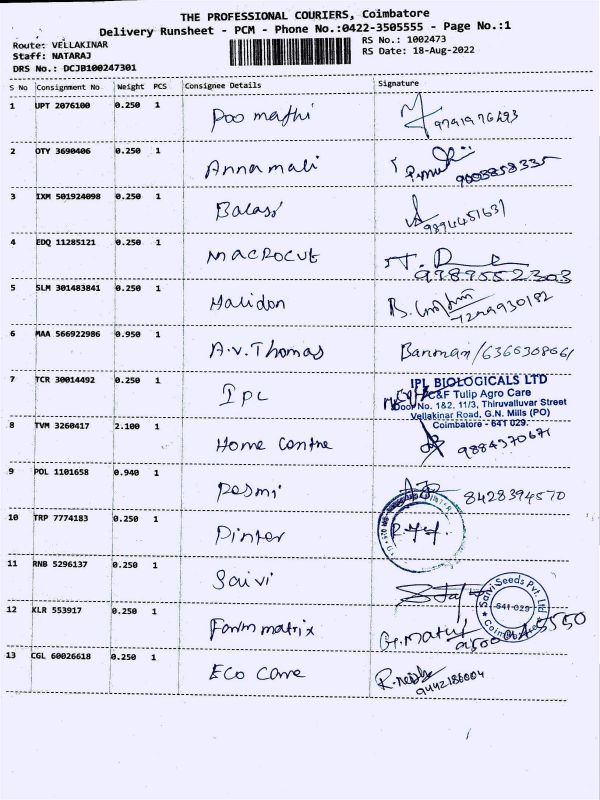 THE PROFESSIONAL COURIERS, Coimbatore
Delivery Runsheet - PCM - Phone No.:0422-3505555 - Page No.:1
Route: VELLAKINAR
RS No.: 1002473
Staff: NATARAJ
RS Date: 18-Aug-2022
DRS No.: DCJB100247301
S No Consignment No Weight PCS Consignee Details Signature
1 UPT 2076100 0.250 1 Poo mathi 9791976293
2 OTY 3690406 0.250 1 Annamali 9003858335
3 IXM 501924098 0.250 1 Balaji 9894451631
4 EDQ 11285121 0.250 1 MACROCUT
9789552303
5 SLM 301483841 0.250 1 Halidon
6 MAA 566922986 0.950 1 A.V. Thomas Barman/6366308661
7 TCR 30014492 0.250 1 IPL
IPL BIOLOGICALS LTD
C&F Tulip Agro Care
Door No. 1&2, 11/3, Thiruvalluvar Street
Vellakinar Road, G.N. Mills (PO)
Coimbatore - 641 029.
8 TVM 3260417 2.100 1 Home Centre 9884370671
9 POL 1101658 0.940 1 Rasmi 8428394570
10 TRP 7774183 0.250 1 Pinter
11 RNB 5296137 0.250 1 Saivi
Saivi Seeds Pvt. Ltd
641 029
Coimbatore
12 KLR 553917 0.250 1 Farm matrix
13 CGL 60026618 0.250 1 Eco Care 9442186004